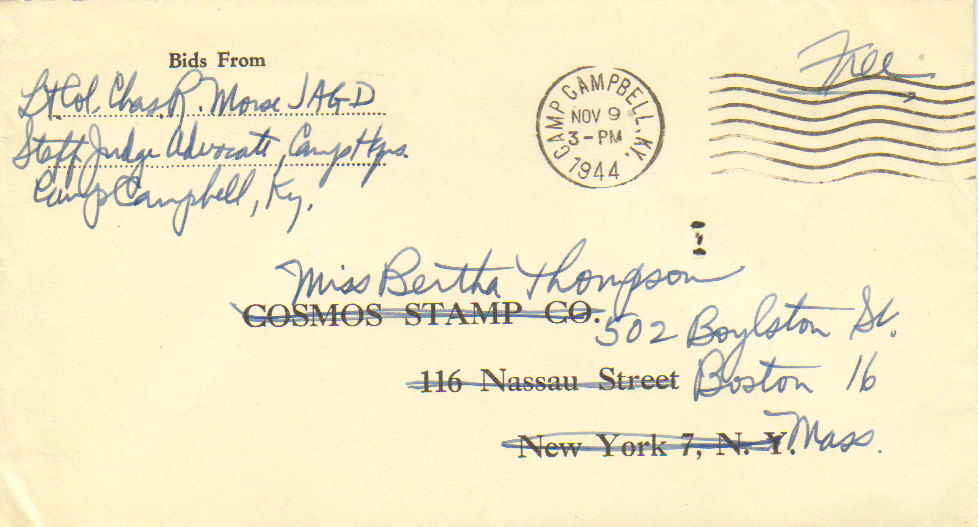 Bids From
Lt. Col. Chas. R. Morse JAGD
Staff Judge Advocate, Camp Hqrs.
Camp Campbell, Ky.
CAMP CAMPBELL, KY.
NOV 9
3-PM
1944
Free
Miss Bertha Thompson
COSMOS STAMP CO.
502 Boylston St.
116 Nassau Street
Boston 16
New York 7, N. Y.
Mass.